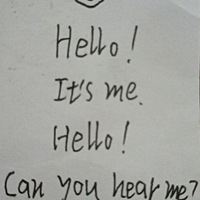 Hello!
It's me.
Hello!
Can you hear me?